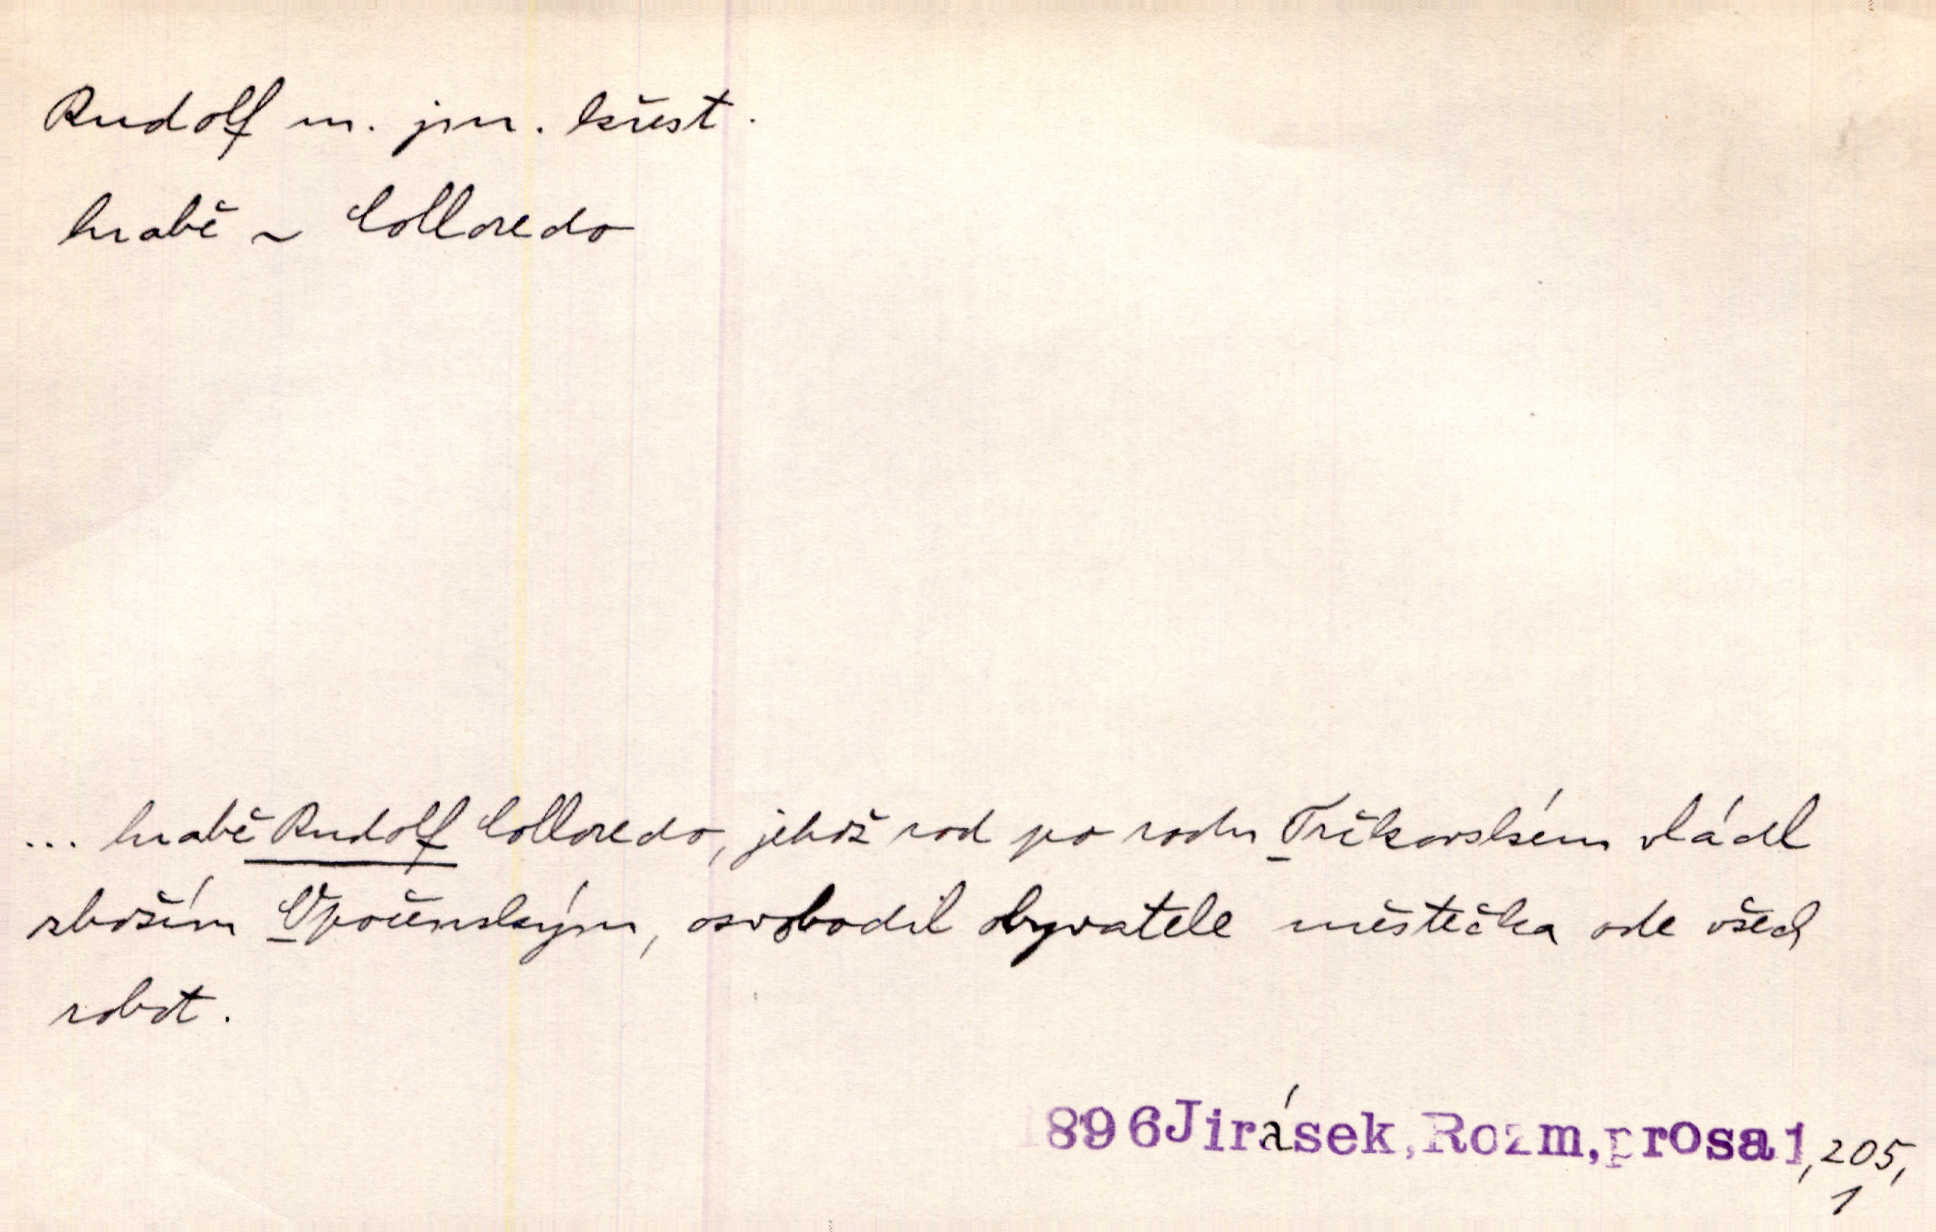 Rudolf m. jm. křest.
hrabě ~ Colloredo
... hrabě Rudolf Colloredo, jehož rod po rodu Trčkovském vládl
zbožím Opočenským, osvobodil obyvatele městečka ode všech
robot.
1896 Jirásek, Rozm, prosa 1, 205,
1